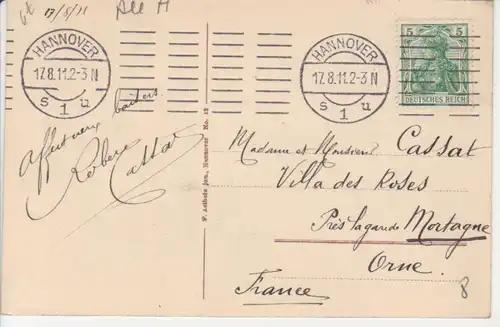 17/8/11
All M
HANNOVER
17.8.11.2-3 N
s 1 u
HANNOVER
17.8.11.2-3 N
s 1 u
5 5
DEUTSCHES REICH
Affectueux baisers
Robert Cassat
Hannover No. 12
Madame et Monsieur Cassat
Villa des Roses
Près la gare de Mortagne
Orne.
France
8